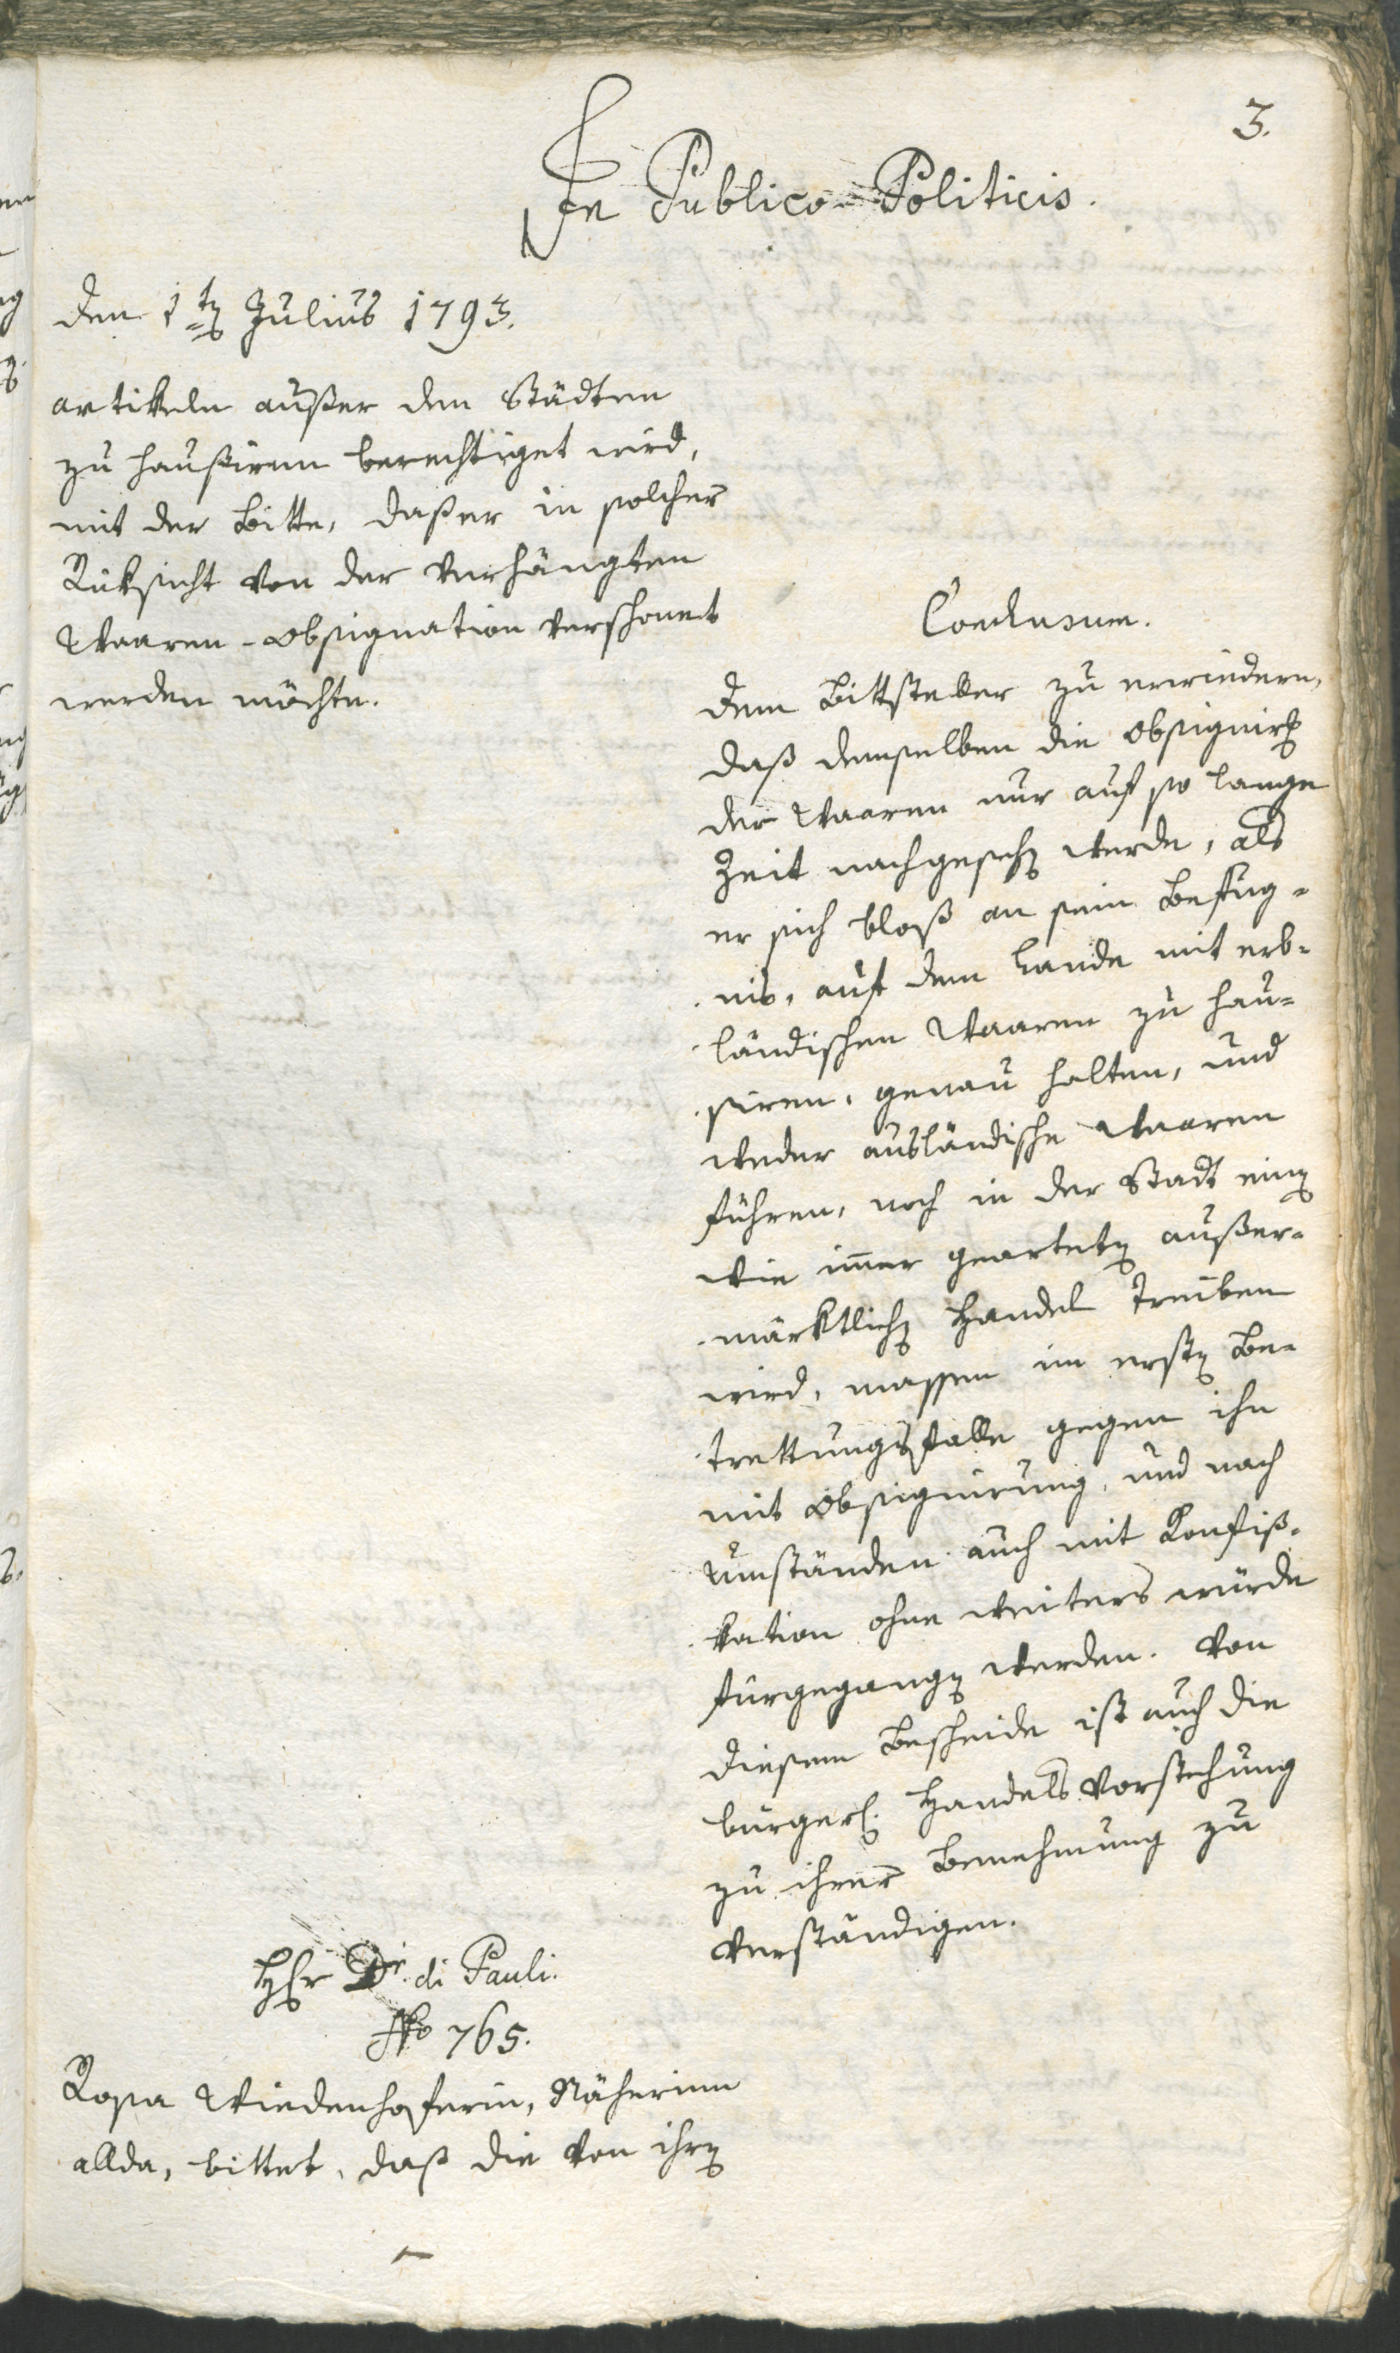 3.
In Publico-Politicis.
den 1ten Julius 1793.
artikeln außer den Städten
zu hausiren berechtiget wird,
mit der Bitte, daß er in solcher
Rüksicht von der verhängten
Waaren-Obsignation verschonet
werden möchte.
Conclusum.
dem Bittsteller zu erwiedern,
daß demselben die Obsignirung
der Waaren nur auf so lange
Zeit nachgesehen werde, als
er sich bloß an sein Befug-
nis, auf dem Lande mit erb-
ländischen Waaren zu hau-
siren, genau halten, und
weder ausländische Waaren
führen, noch in der Stadt einen
wie immer gearteten außer-
märktlichen Handel treiben
wird, massen im ersten Be-
trettungsfalle gegen ihn
mit Obsignirung, und nach
Umständen auch mit Konfis-
kation ohne weiters würde
fürgegangen werden. Von
diesem Bescheide ist auch die
bürgerl. Handels Vorstehung
zu ihrer Benehmung zu
verständigen.
Hr Dr. di Pauli.
No 765.
Rosa Wiedenhoferin, Näherinn
allda, bittet, daß die von ihren